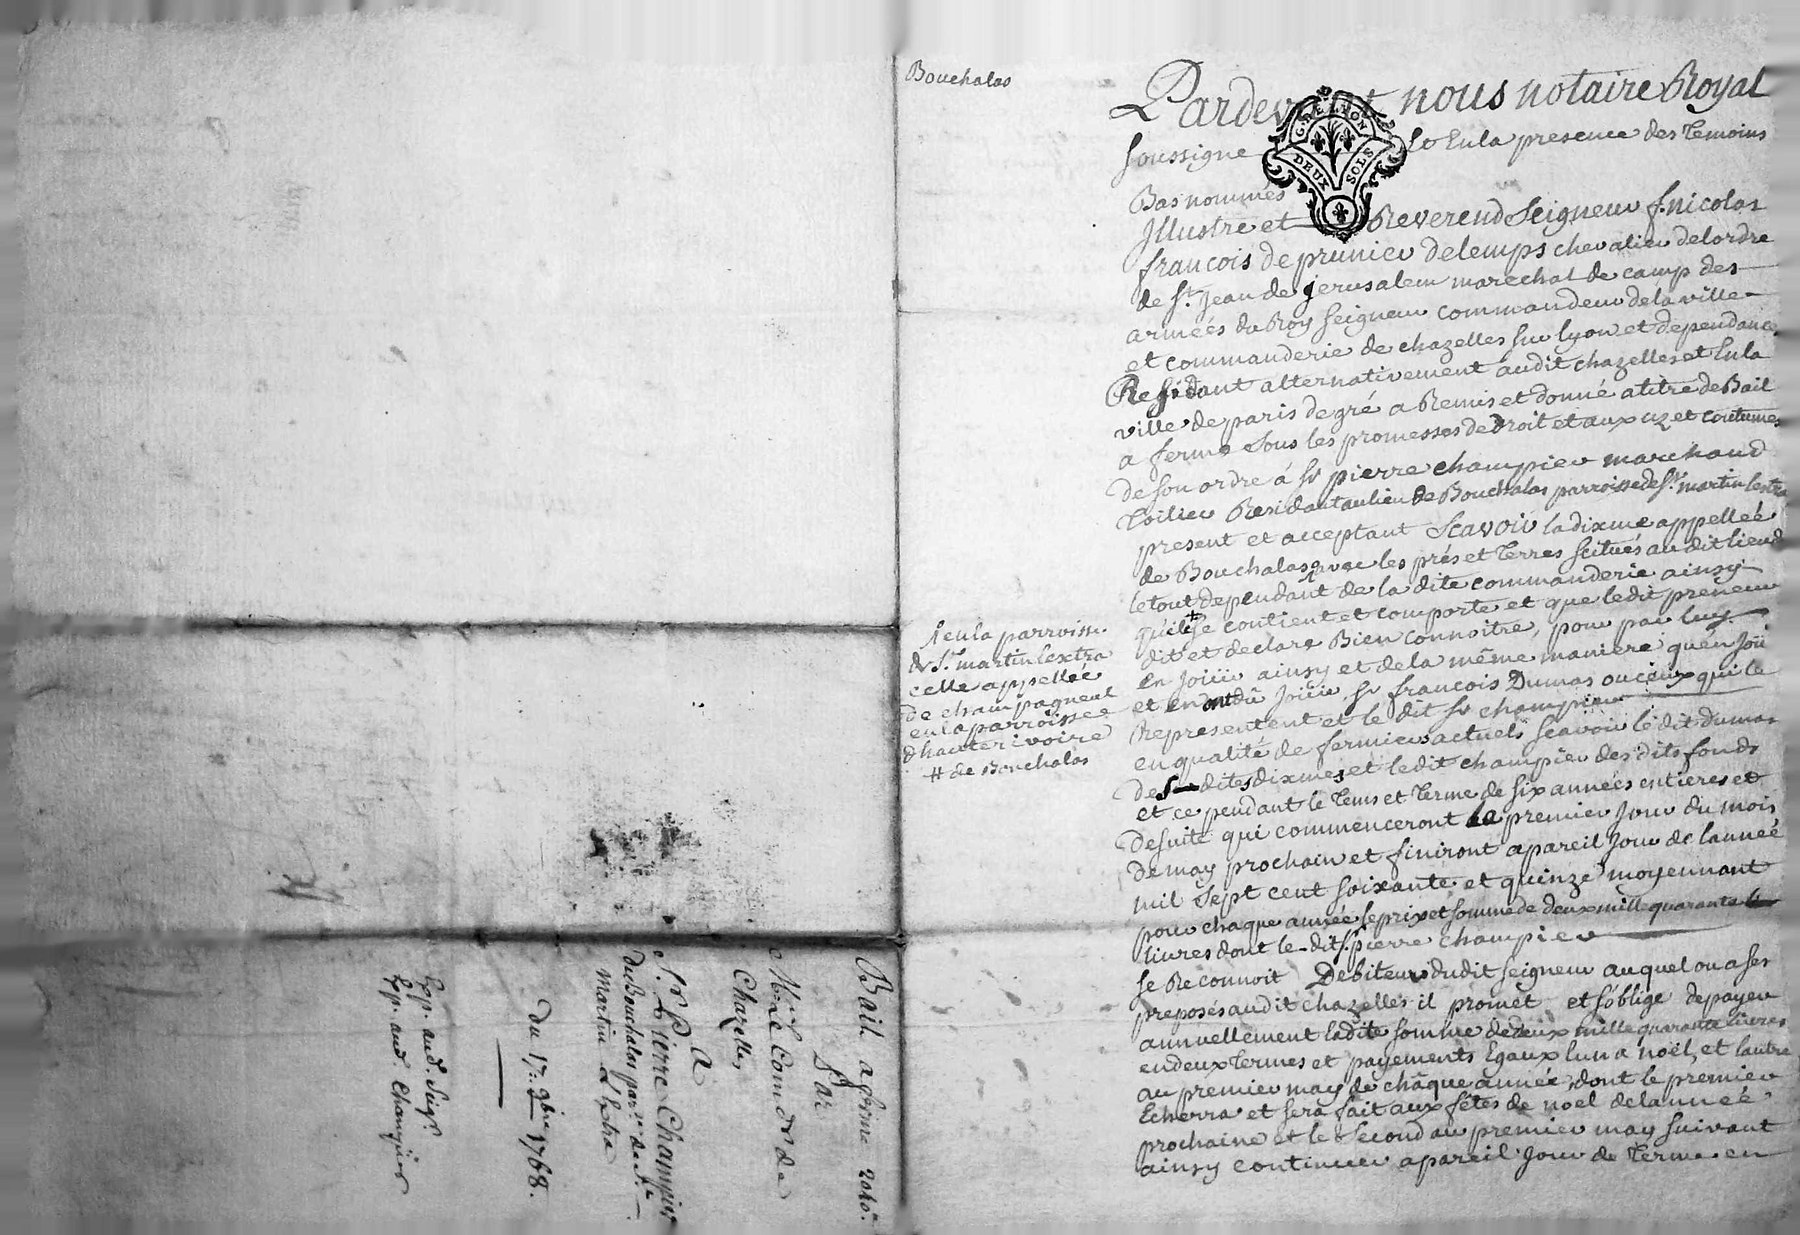 Bouchalas
Pardevant nous notaire Royal
soussigné Et Enla presence des temoins
Bas nommés
Illustre et Reverend Seigneur f. nicolas
francois de prunier delemps chevalier delordre
de St. jean de jerusalem marechal de camp des
armées du Roy seigneur commandeur dela ville
et commanderie de chazelles sur lyon et dependances
Residant alternativement audit chazelles et Enla
ville de paris de gré a Remis et donné a titre de Bail
a ferme sous les promesses de droit et aux uz et coutumes
de son ordre á sr pierre champier marchand
toilier Residant aulieu de Bouchalas parroisse de St. martin lestra
present et acceptant Scavoir la dixme appellée
de Bouchalas avec les prés et terres scitués au dit lieu #
le tout dependant de la dite commanderie ainsy
qu'il se contient et comporte et que ledit preneur
dit et declare Bien connoitre, pour par luy
en jouir ainsy et de la même maniere qu'en joui
et en ont dû jouir sr francois Dumas ou ceux qui le
Representent et le dit sr champier
en qualité de fermiers actuels scavoir le dit dumas
des dites dixmes et ledit champier des dits fonds
et ce pendant le tems et terme de six années entieres et
desuite qui commenceront le premier jour du mois
de may prochain et finiront apareil jour de lannée
mil sept cent soixante et quinze moyennant
pour chaque année le prix et somme de deux mille quarante
livres dont le dit sr pierre champier
se Reconnoit Debiteur dudit seigneur auquel ou a ses
preposés audit chazelles il promet et s'oblige depayer
annuellement ladite somme de deux mille quarante livres
en deux termes et payements Egaux lun a noël et lautre
au premier may de châque année, dont le premier
Echerra et sera fait aux fêtes de noel de lannée
prochaine et le second au premier may suivant
ainsy continuer apareil jour de terme en
+ enla parroisse
de St. martin lextra
celle appellée
de champagneul
en la parroisse
d'hauterivoire
# de Bouchalas
Bail aferme 2040.
Par
Mr le Comdr de
Chazelles
A
Sr. Pierre Champier
du Bouchalas par.sse de St.
Martin L'Extra
du 17.e 9bre 1768.
Exp. aud. Seigr.
Exp. aud. Champier
G. DE LYON
DEUX SOLS